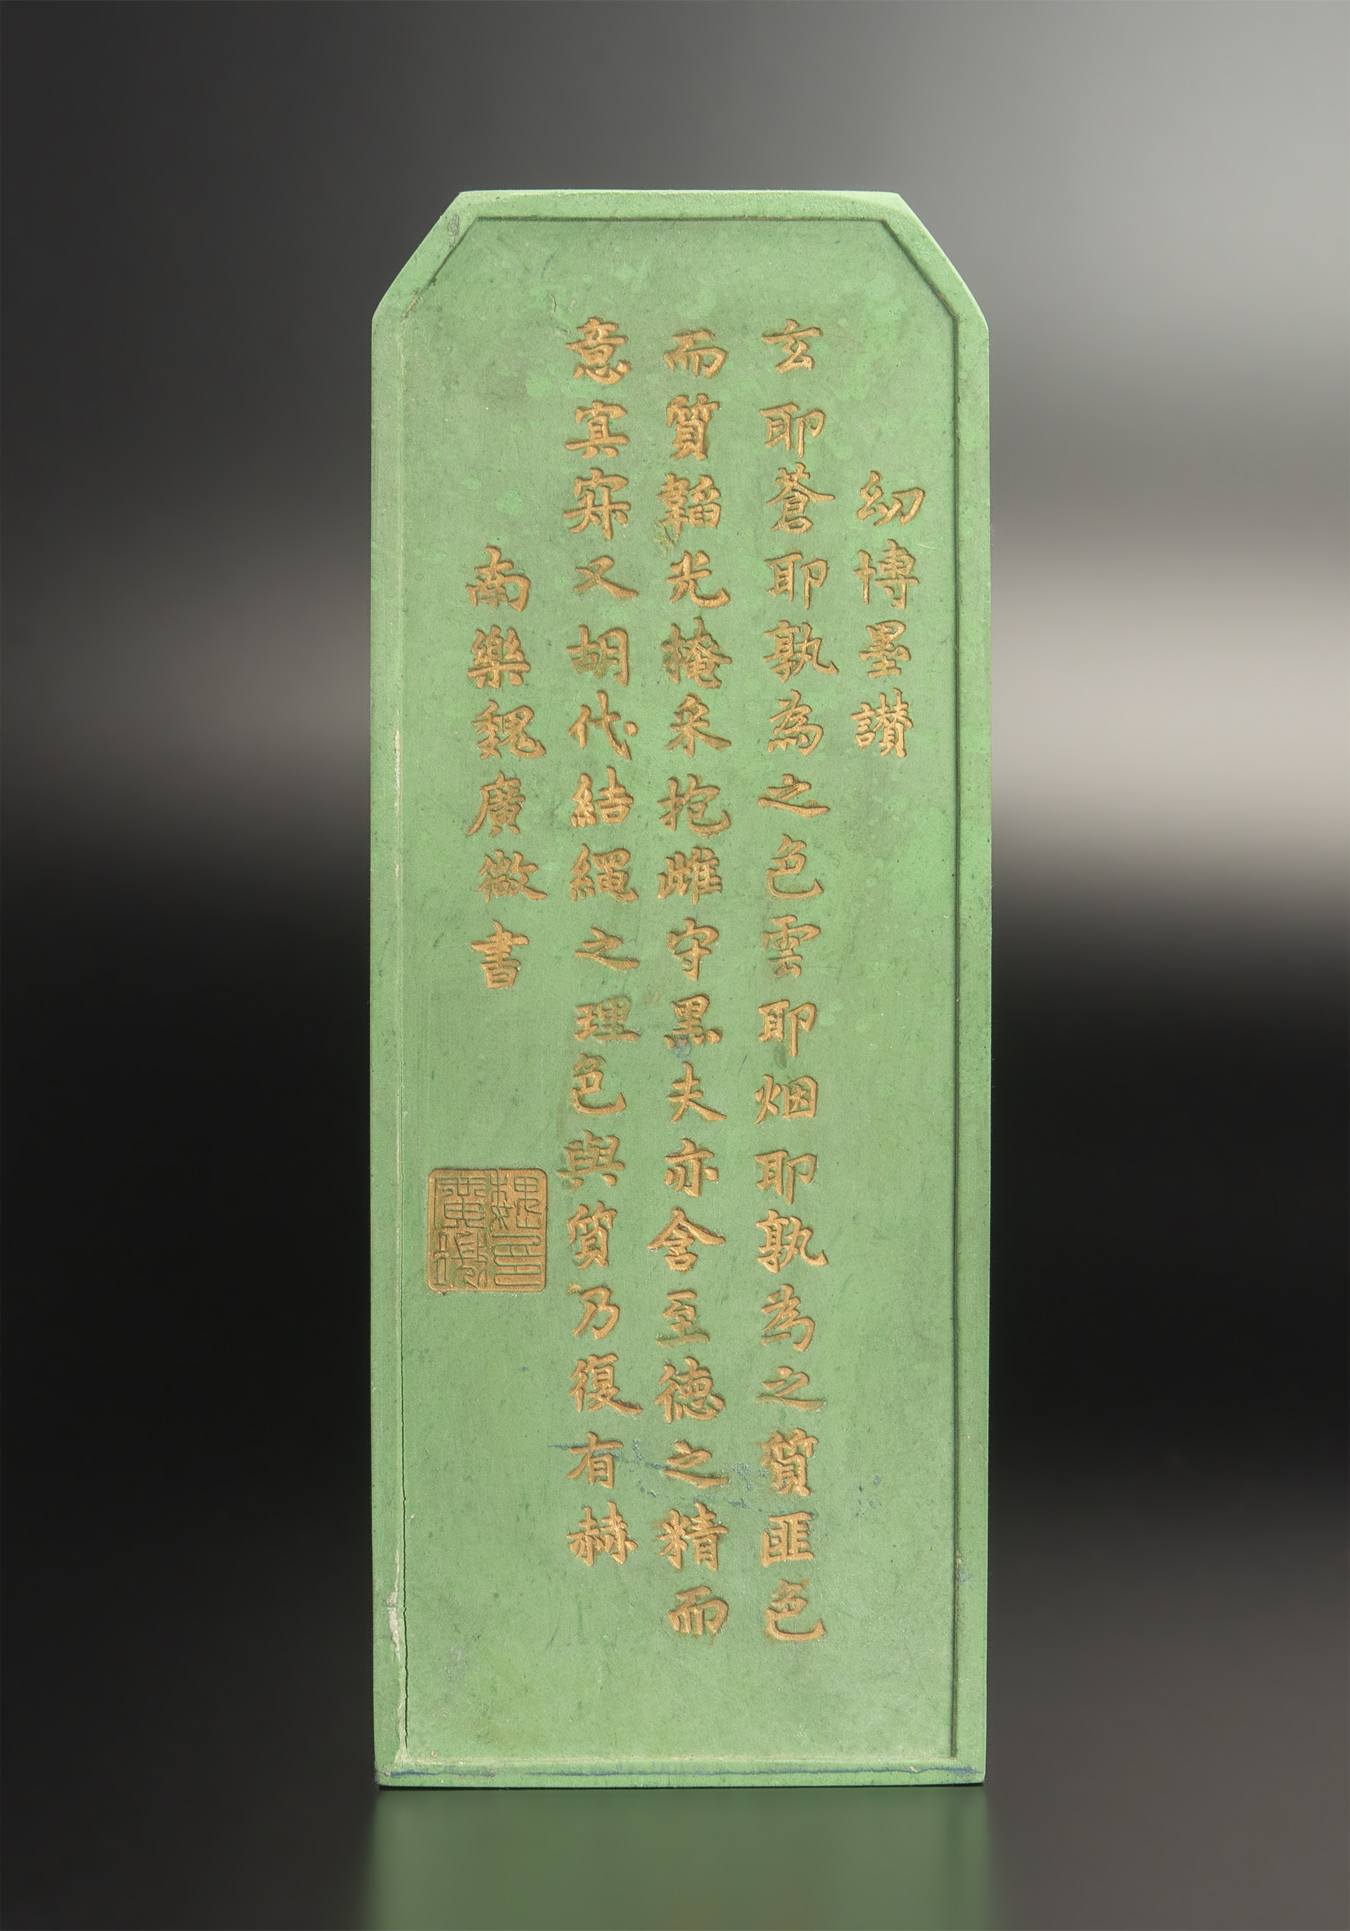 幼博墨讃
玄耶蒼耶孰為之色雲耶烟耶孰為之質匪色
而質韜光掩采抱雌守黑夫亦含至德之精而
意寘寀又胡代結繩之理色與質乃復有赫
南樂魏廣微書
魏廣微印